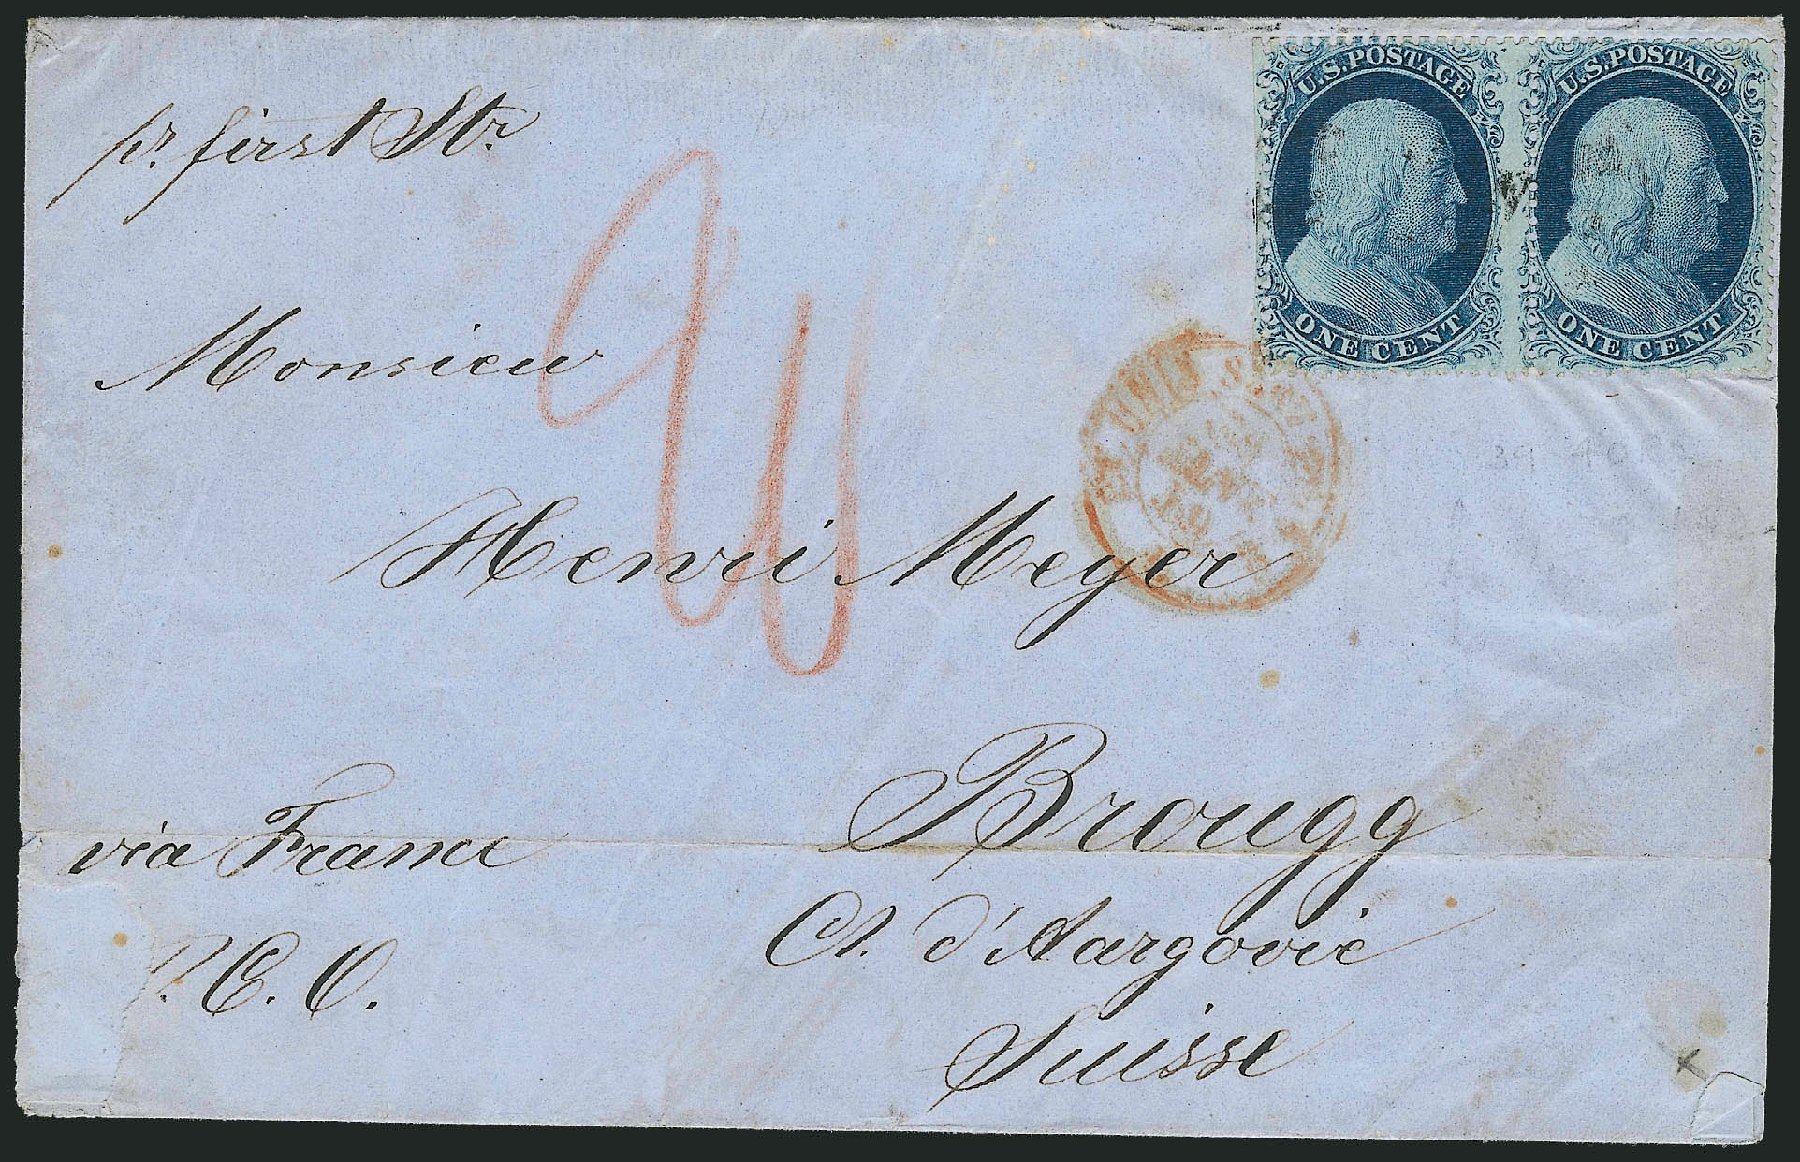 U.S. POSTAGE
ONE CENT
U.S. POSTAGE
ONE CENT
pr. first Str.
Monsieur
Henri Meyer
Brougg
Ct. d'Aargovie
Suisse
via France